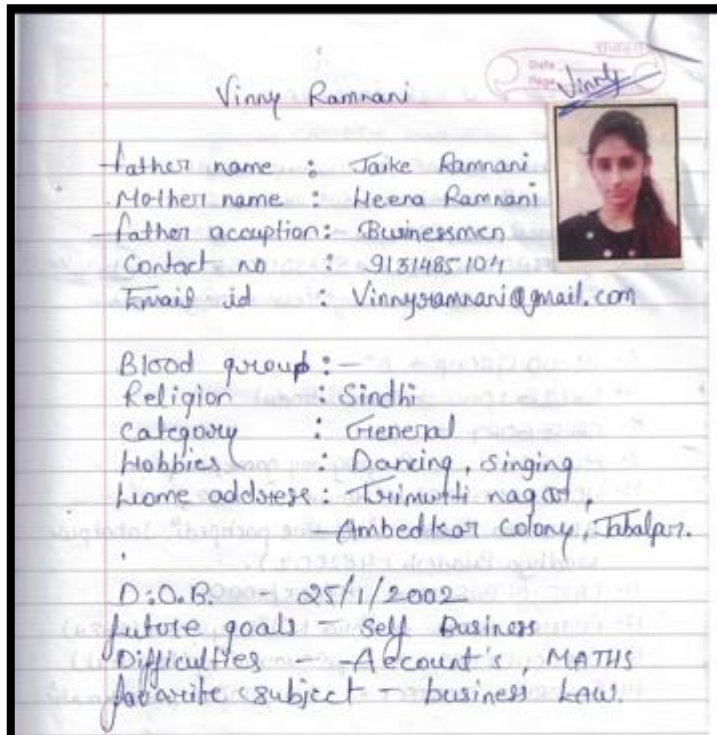 Date
Page
Vinny
Vinny Ramnani
father name : Jaike Ramnani
Mother name : Heena Ramnani
father accuption : Businessmen
Contact no : 9131485104
Email id : Vinnyramnani@gmail.com
Blood group : -
Religion : Sindhi
Category : General
Hobbies : Dancing, singing
Home address : Trimutti nagar,
Ambedkar Colony, Jabalpur.
D.O.B. - 25/1/2002
future goals - self Business
Difficulties - Account's, MATHS
favorite subject - business LAW.